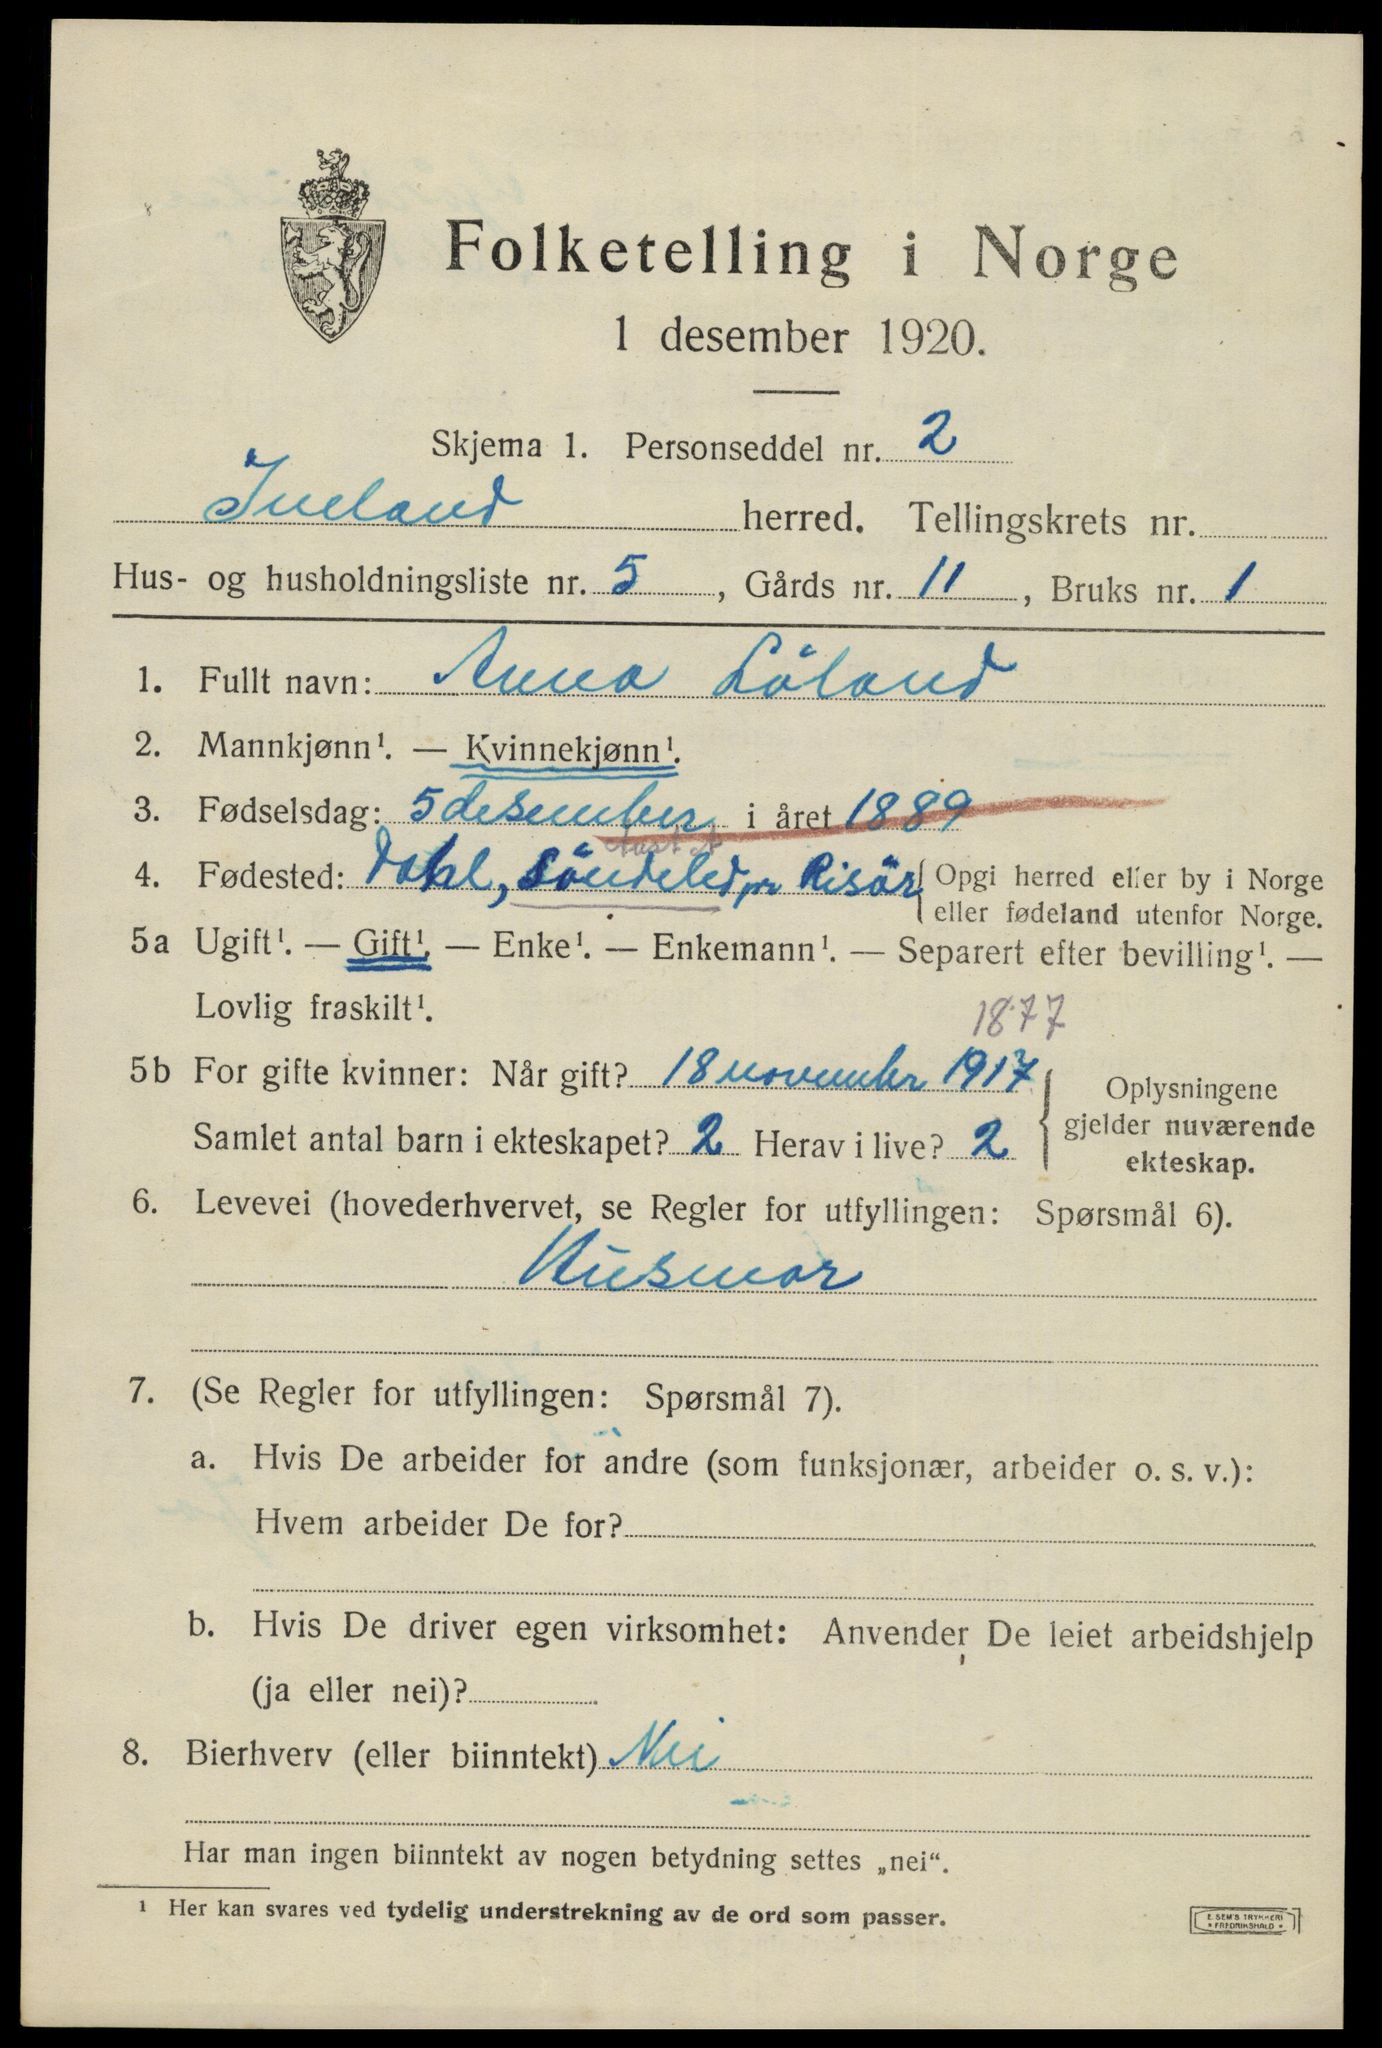 Folketelling i Norge
1 desember 1920.
Skjema 1. Personseddel nr. 2
Iveland herred. Tellingskrets nr.
Hus- og husholdningsliste nr. 5, Gårds nr. 11, Bruks nr. 1
1. Fullt navn: Anna Löland
2. Mannkjønn¹. — Kvinnekjønn¹.
3. Fødselsdag: 5 desember i året 1889
Aust A
4. Fødested: Dahl, Söndeled pr Risör { Opgi herred eller by i Norge
eller fødeland utenfor Norge.
5a Ugift¹. — Gift¹. — Enke¹. — Enkemann¹. — Separert efter bevilling¹. —
Lovlig fraskilt¹.
1877
5b For gifte kvinner: Når gift? 18 november 1917
Samlet antal barn i ekteskapet? 2 Herav i live? 2
{ Oplysningene
gjelder nuværende
ekteskap.
6. Levevei (hovederhvervet, se Regler for utfyllingen: Spørsmål 6).
Husmor
7. (Se Regler for utfyllingen: Spørsmål 7).
a. Hvis De arbeider for andre (som funksjonær, arbeider o. s. v.):
Hvem arbeider De for?
b. Hvis De driver egen virksomhet: Anvender De leiet arbeidshjelp
(ja eller nei)?
8. Bierhverv (eller biinntekt) Nei
Har man ingen biinntekt av nogen betydning settes „nei“.
¹ Her kan svares ved tydelig understrekning av de ord som passer.
E. SEM'S TRYKKERI
* FREDRIKSHALD *